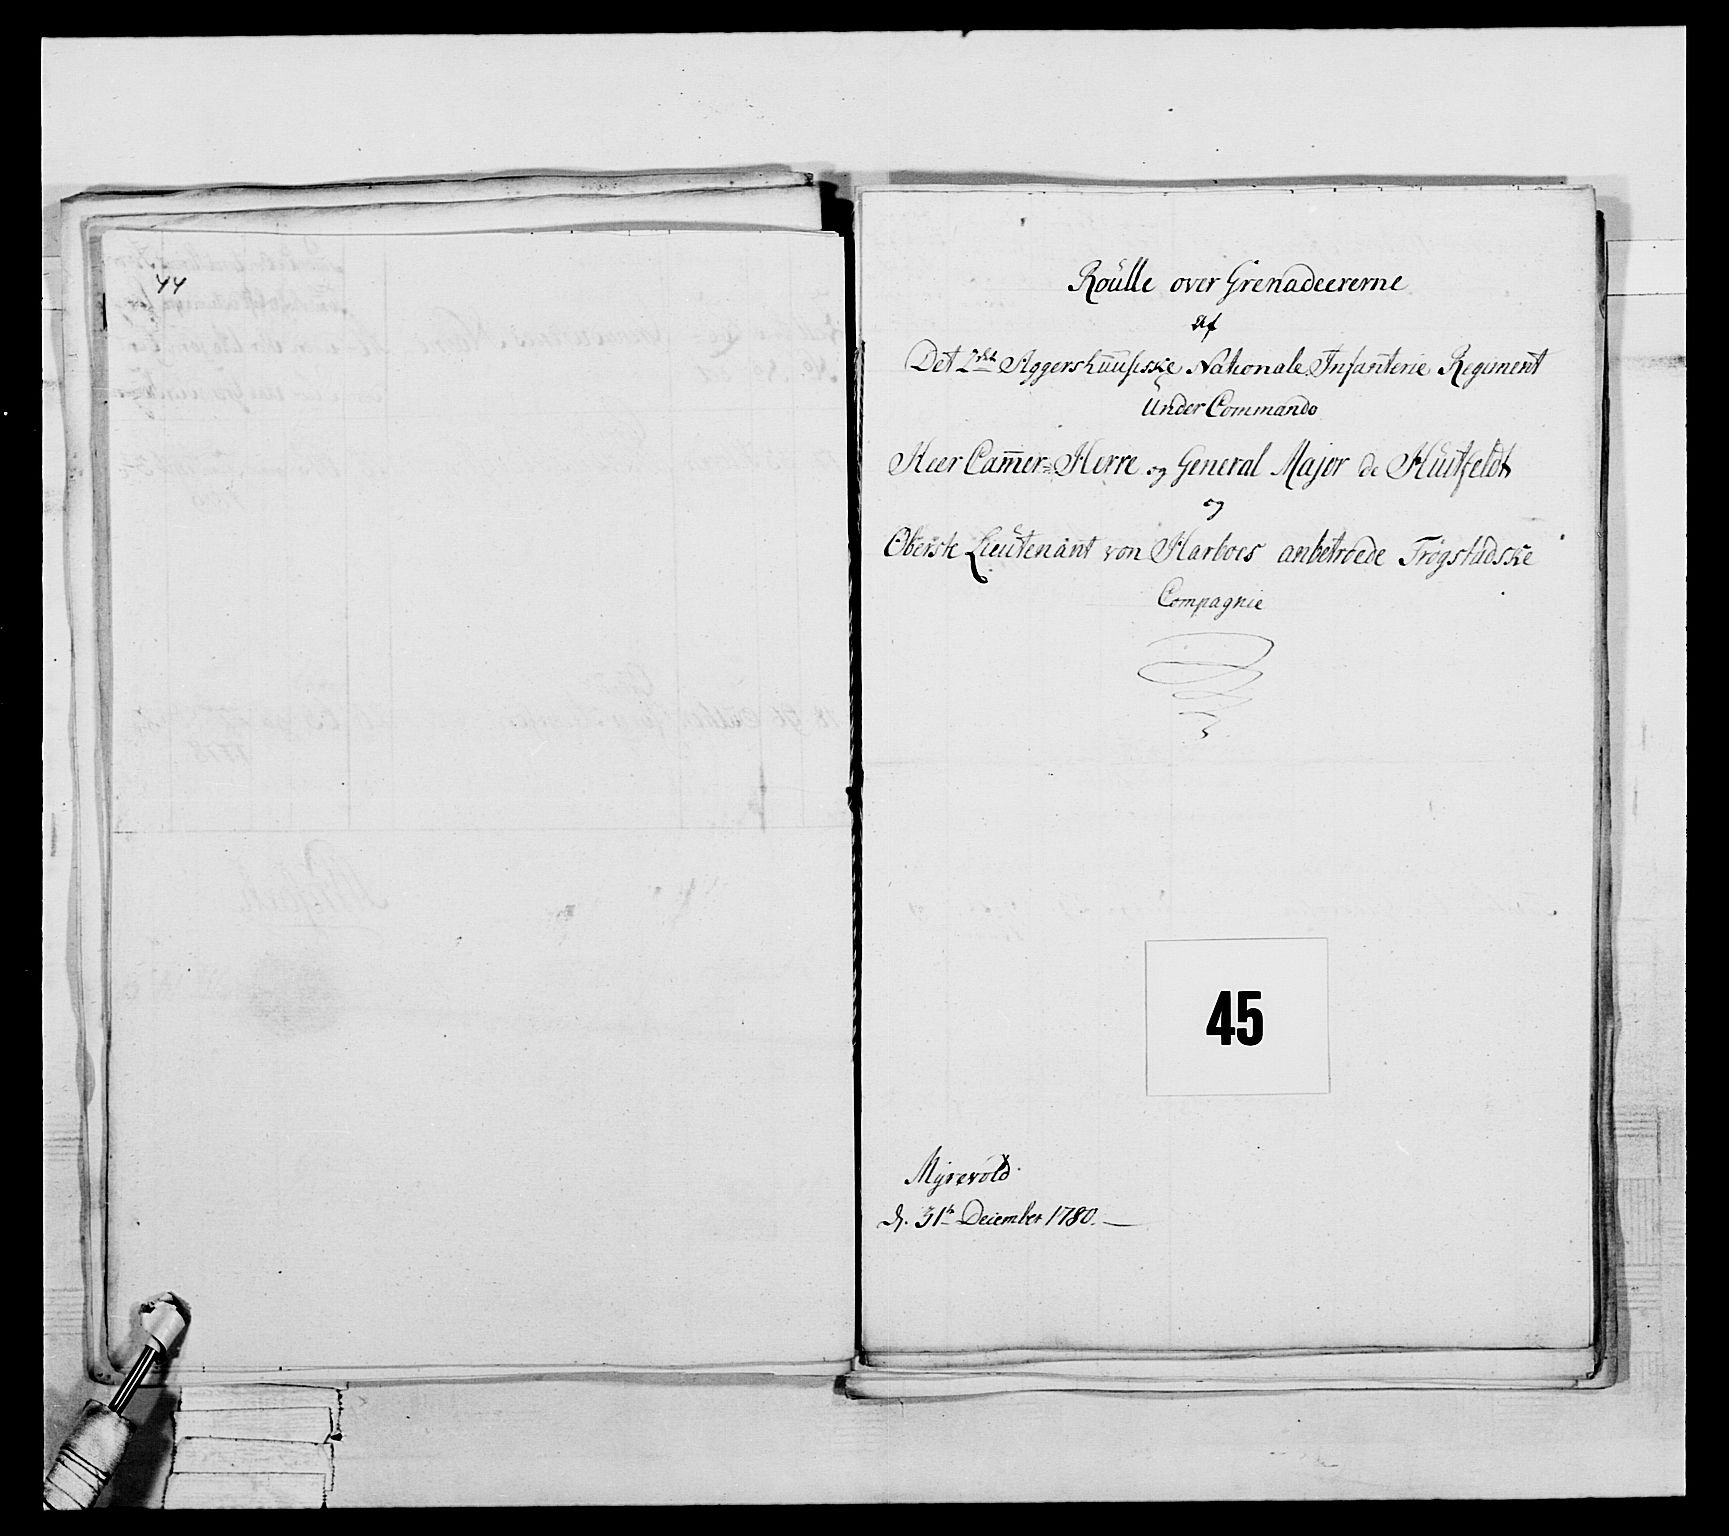 44
Roülle over Grenadeererne
af
Det 2det Aggershuusiske Nationale Infanterie Regiment
Under Commando
Heer Cam̄er-Herre og General Major de Hüitfeldt
og
Oberste Lieutenant von Harboes anbetroede Trøgstadske
Compagnie
45
Myrevold
d. 31te December 1780.